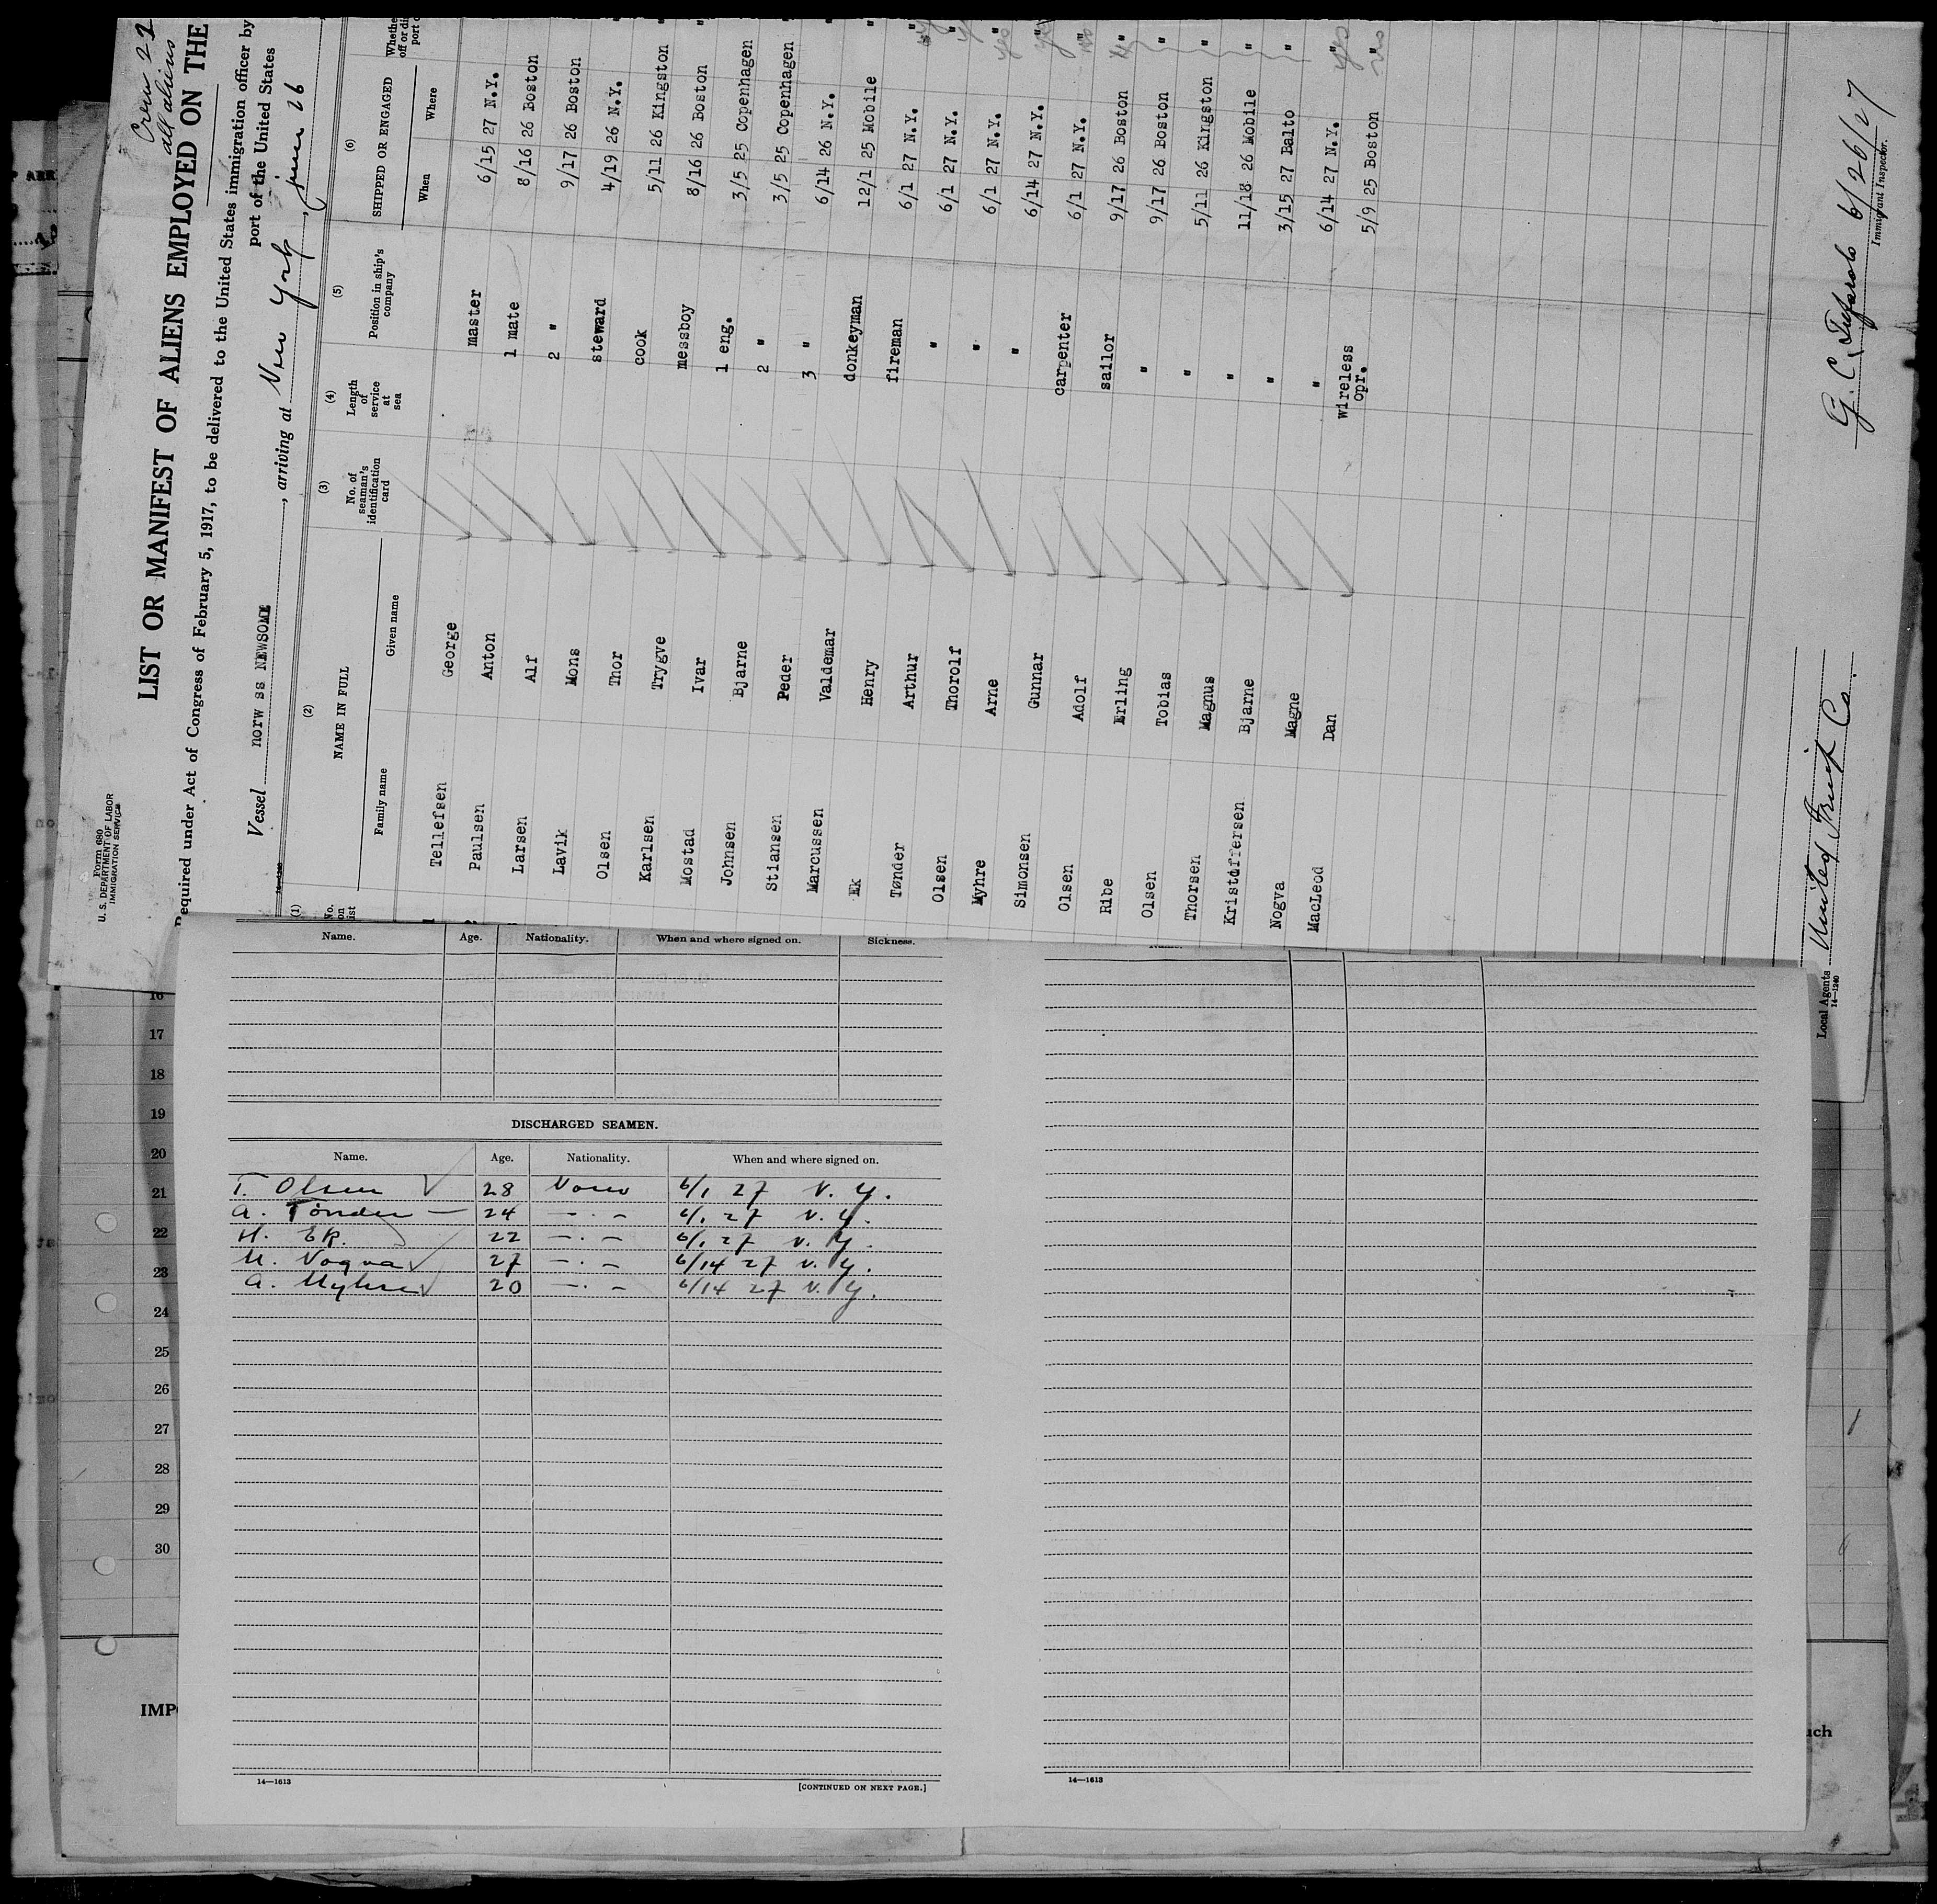 Crew 22
all aliens
Form 680
U. S. DEPARTMENT OF LABOR
IMMIGRATION SERVICE
LIST OR MANIFEST OF ALIENS EMPLOYED ON THE
Required under Act of Congress of February 5, 1917, to be delivered to the United States immigration officer by
port of the United States
Vessel norw ss NEWSOME, arriving at New York, June 26
14—1240
(1) (2) (3) (4) (5) (6)
No. on list NAME IN FULL No. of seaman's identification card Length of service at sea Position in ship's company SHIPPED OR ENGAGED
Family name Given name When Where
Tellefsen George master 6/15 27 N.Y. "
Paulsen Anton 1 mate 8/16 26 Boston "
Larsen Alf 2 " 9/17 26 Boston "
Lavik Mons steward 4/19 26 N.Y. "
Olsen Thor cook 5/11 26 Kingston "
Karlsen Trygve messboy 8/16 26 Boston "
Mostad Ivar 1 eng. 3/5 25 Copenhagen "
Johnsen Bjarne 2 " 3/5 25 Copenhagen "
Stiansen Peder 3 " 6/14 26 N.Y. "
Marcussen Valdemar donkeyman 12/1 25 Mobile "
Ek Henry fireman 6/1 27 N.Y. "
Tønder Arthur " 6/1 27 N.Y. "
Olsen Thorolf " 6/1 27 N.Y. " yes
Myhre Arne " 6/14 27 N.Y. " yes
Simonsen Gunnar carpenter 6/1 27 N.Y. " no
Olsen Adolf sailor 9/17 26 Boston "
Ribe Erling " 9/17 26 Boston "
Olsen Tobias " 5/11 26 Kingston "
Thorsen Magnus " 11/18 26 Mobile "
Kristoffersen Bjarne " 3/15 27 Balto "
Nogva Magne " 6/14 27 N.Y. " yes
MacLeod Dan wireless opr. 5/9 25 Boston " no
6/26/27
Immigrant Inspector.
Local Agents United Fruit Co.
14—1240
Name. Age. Nationality. When and where signed on. Sickness.
DISCHARGED SEAMEN.
Name. Age. Nationality. When and where signed on.
T. Olsen 28 Norw 6/1 27 N.Y.
A. Tønder 24 — . — 6/1 27 N.Y.
H. Ek. 22 — . — 6/1 27 N.Y.
M. Nogva 27 — . — 6/14 27 N.Y.
A. Myhre 20 — . — 6/14 27 N.Y.
14—1613
[CONTINUED ON NEXT PAGE.]
14—1613
16
17
18
19
20
21
22
23
24
25
26
27
28
29
30